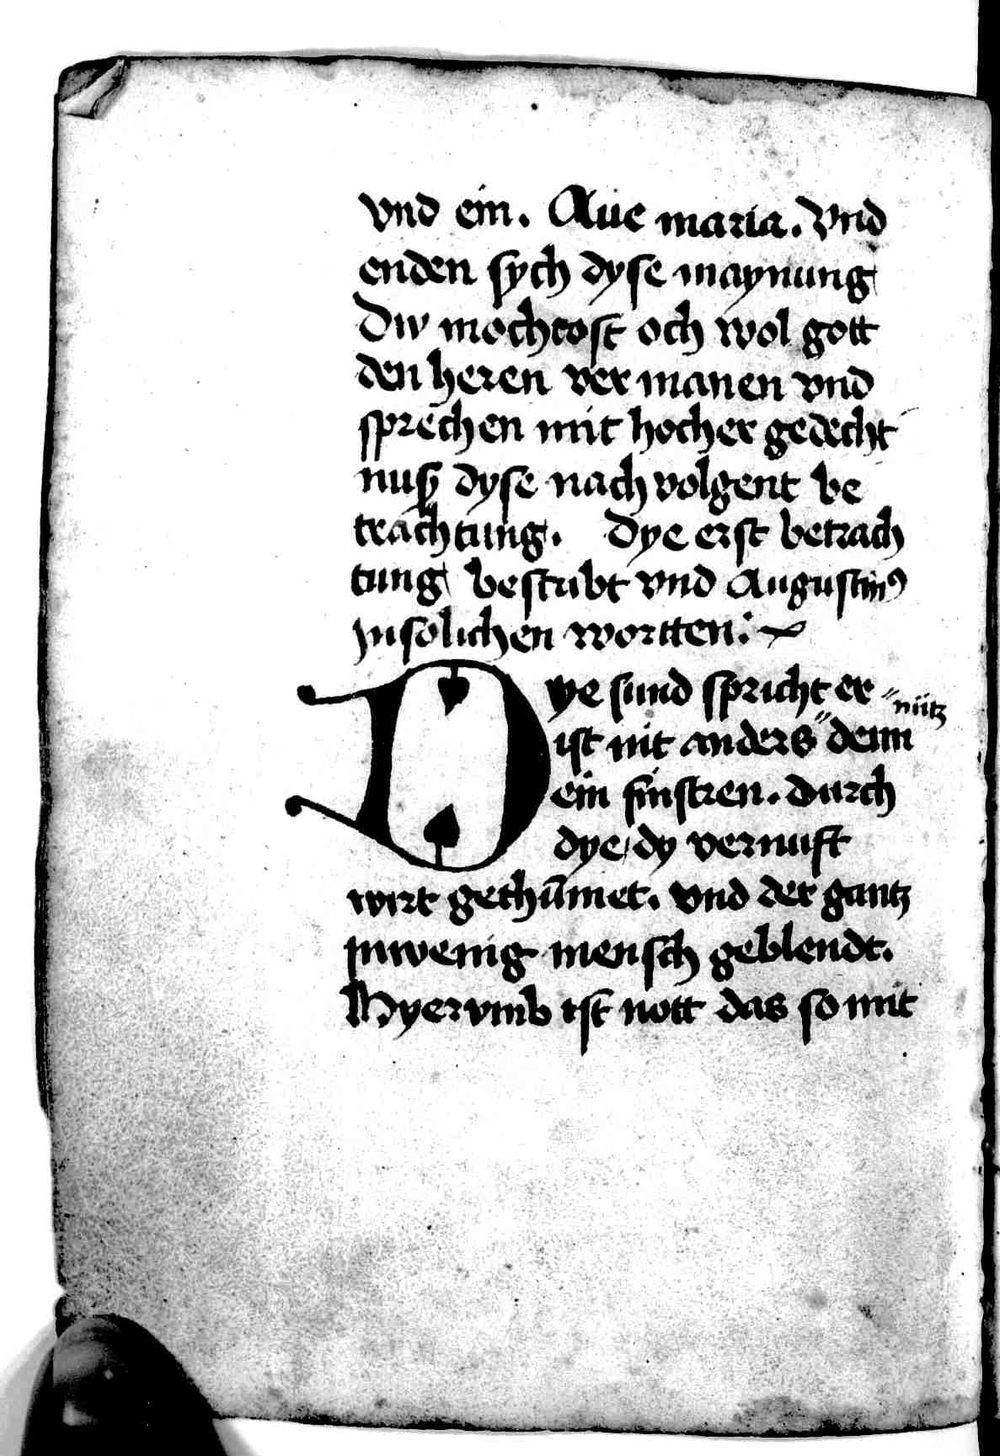 vnd ein. Aue maria. Vnd
enden sych dyse maynung
Dw mochtost och wol gott
den heren ver manen vnd
sprechen mit hocher gedecht
nuß dyse nach volgent be
trachtung. Dye erst betrach
tung bestubt vnd Augustin⁹
jn solichen wortten:
Dye sund spricht er
ist nit anders "denn "nütz
ein finstren. durch
dye, dy vernuft
wirt gethūmet. vnd der gantz
jnwenig mensch geblendt.
Hyervmb ist nott das so mit